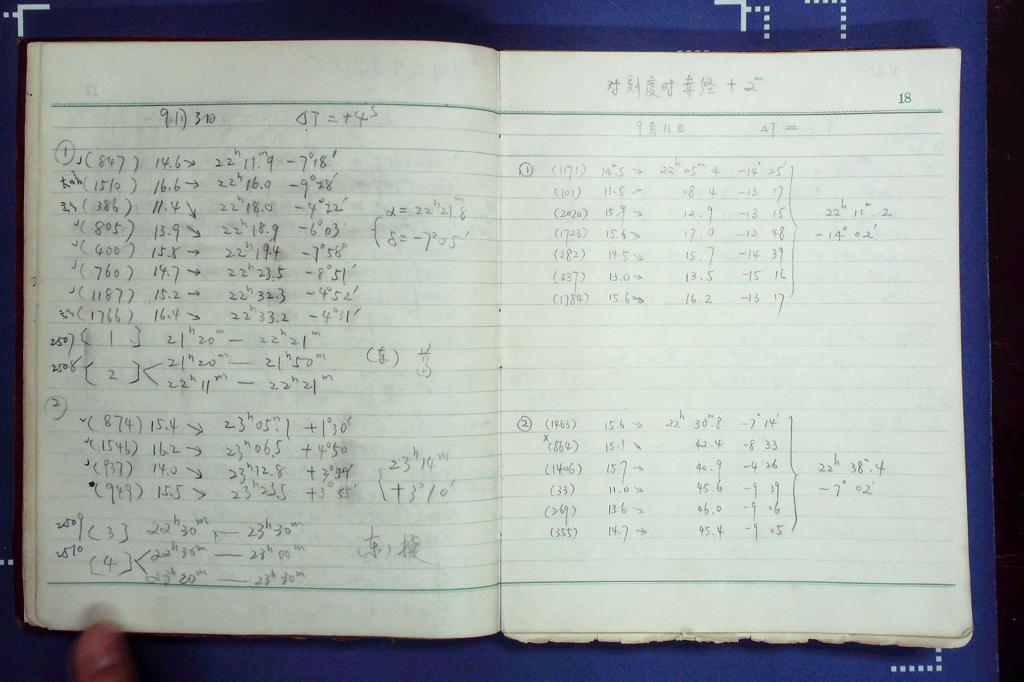 9月3日 ΔT=+4ˢ
①
√(847) 14.6↘ 22ʰ11ᵐ.9 -7°18′
(1510) 16.6→ 22ʰ16.0 -9°28′
(386) 11.4↘ 22ʰ18.0 -4°22′
√(805) 13.9↘ 22ʰ18.9 -6°03′
√(400) 15.8↘ 22ʰ19.4 -7°58′
√(760) 14.7↘ 22ʰ23.5 -8°51′
√(1187) 15.2→ 22ʰ32.3 -4°52′
(1766) 16.4↘ 22ʰ33.2 -4°31′
α=22ʰ21ᵐ.8
δ=-7°05′
2507 [1] 21ʰ20ᵐ — 22ʰ21ᵐ
2508 [2] 21ʰ20ᵐ — 21ʰ50ᵐ
22ʰ11ᵐ — 22ʰ21ᵐ
(东)
②
√(874) 15.4↘ 23ʰ05ᵐ.1 +1°30′
√(1546) 16.2→ 23ʰ06.5 +4°50
√(937) 14.0↘ 23ʰ12.8 +3°39′
(949) 15.5↘ 23ʰ23.5 +3°55′
23ʰ14ᵐ
+3°10′
2509 [3] 22ʰ30ᵐ — 23ʰ30ᵐ
2510 [4] 22ʰ30ᵐ — 23ʰ00ᵐ
23ʰ20ᵐ — 23ʰ30ᵐ
(东)
对刻度时赤经+2ᵐ
18
9月11日 ΔT=
① (1171) 14ᵐ.5↘ 22ʰ05ᵐ.4 -14°25′
(101) 11.5↘ 08.4 -13 17
(2020) 15.9↘ 12.9 -13 15
(1723) 15.6↘ 17.0 -12 48
(282) 14.5↘ 15.7 -14 39
(337) 13.0↘ 13.5 -15 16
(1784) 15.6↘ 16.2 -13 17
22ʰ11ᵐ.2
-14°02′
② (1463) 15.6↘ 22ʰ30ᵐ.8 -7°14′
×(864) 15.1↘ 42.4 -8 33
(1406) 15.7→ 40.9 -4 26
(33) 11.0↘ 45.6 -9 39
(269) 13.6↘ 46.0 -9 06
(355) 14.7→ 45.4 -9 05
22ʰ38ᵐ.4
-7°02′